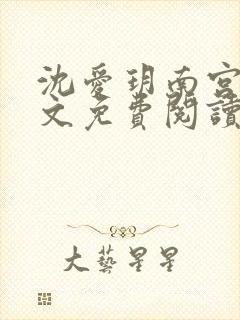 沈爱玥南宫
文免費閱讀
大藝星星